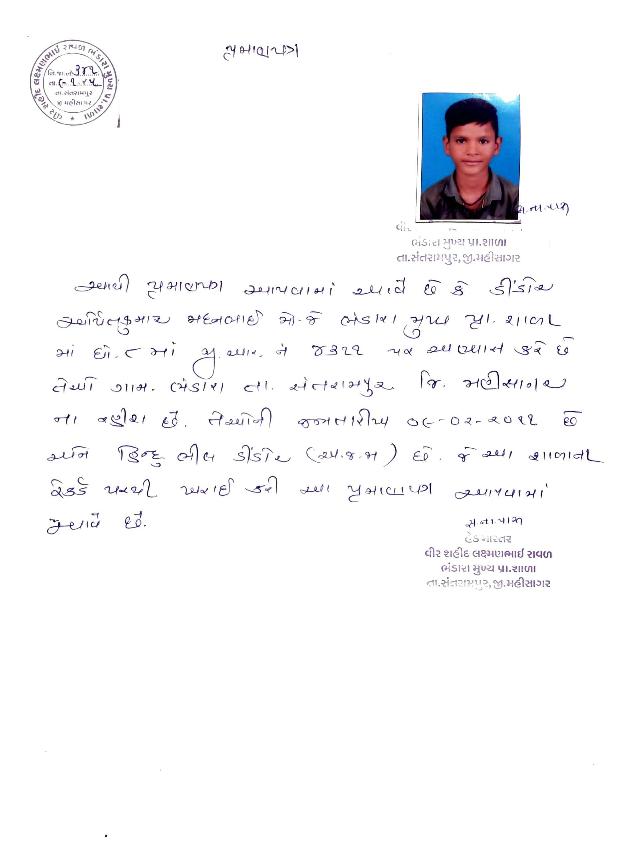 પ્રમાણપત્ર
વીર શહીદ લક્ષ્મણભાઈ રાવળ ભંડારા મુખ્ય પ્રા.શાળા
તા.સંતરામપુર
જી.મહીસાગર
વીર
ભંડારા મુખ્ય પ્રા.શાળા
તા.સંતરામપુર,જી.મહીસાગર
આથી પ્રમાણપત્ર આપવામાં આવે છે કે ડીંડોર
મદનભાઈ જે ભંડારા મુખ્ય પ્રા. શાળા
માં ધો.૮ માં જી.આર. નં ૪૩૨૨ પર અભ્યાસ કરે છે
તેઓ ગામ. ભંડારા તા. સંતરામપુર જિ. મહીસાગર
ના વતની છે. તેઓની જન્મતારીખ ૦૯-૦૨-૨૦૧૧ છે
અને હિન્દુ ભીલ ડીંડોર (અ.જ.જા) છે. જે આ શાળાના
રેકર્ડ પરથી ખરાઈ કરી આ પ્રમાણપત્ર આપવામાં
આવે છે.
હેડ માસ્તર
વીર શહીદ લક્ષ્મણભાઈ રાવળ
ભંડારા મુખ્ય પ્રા.શાળા
તા.સંતરામપુર,જી.મહીસાગર